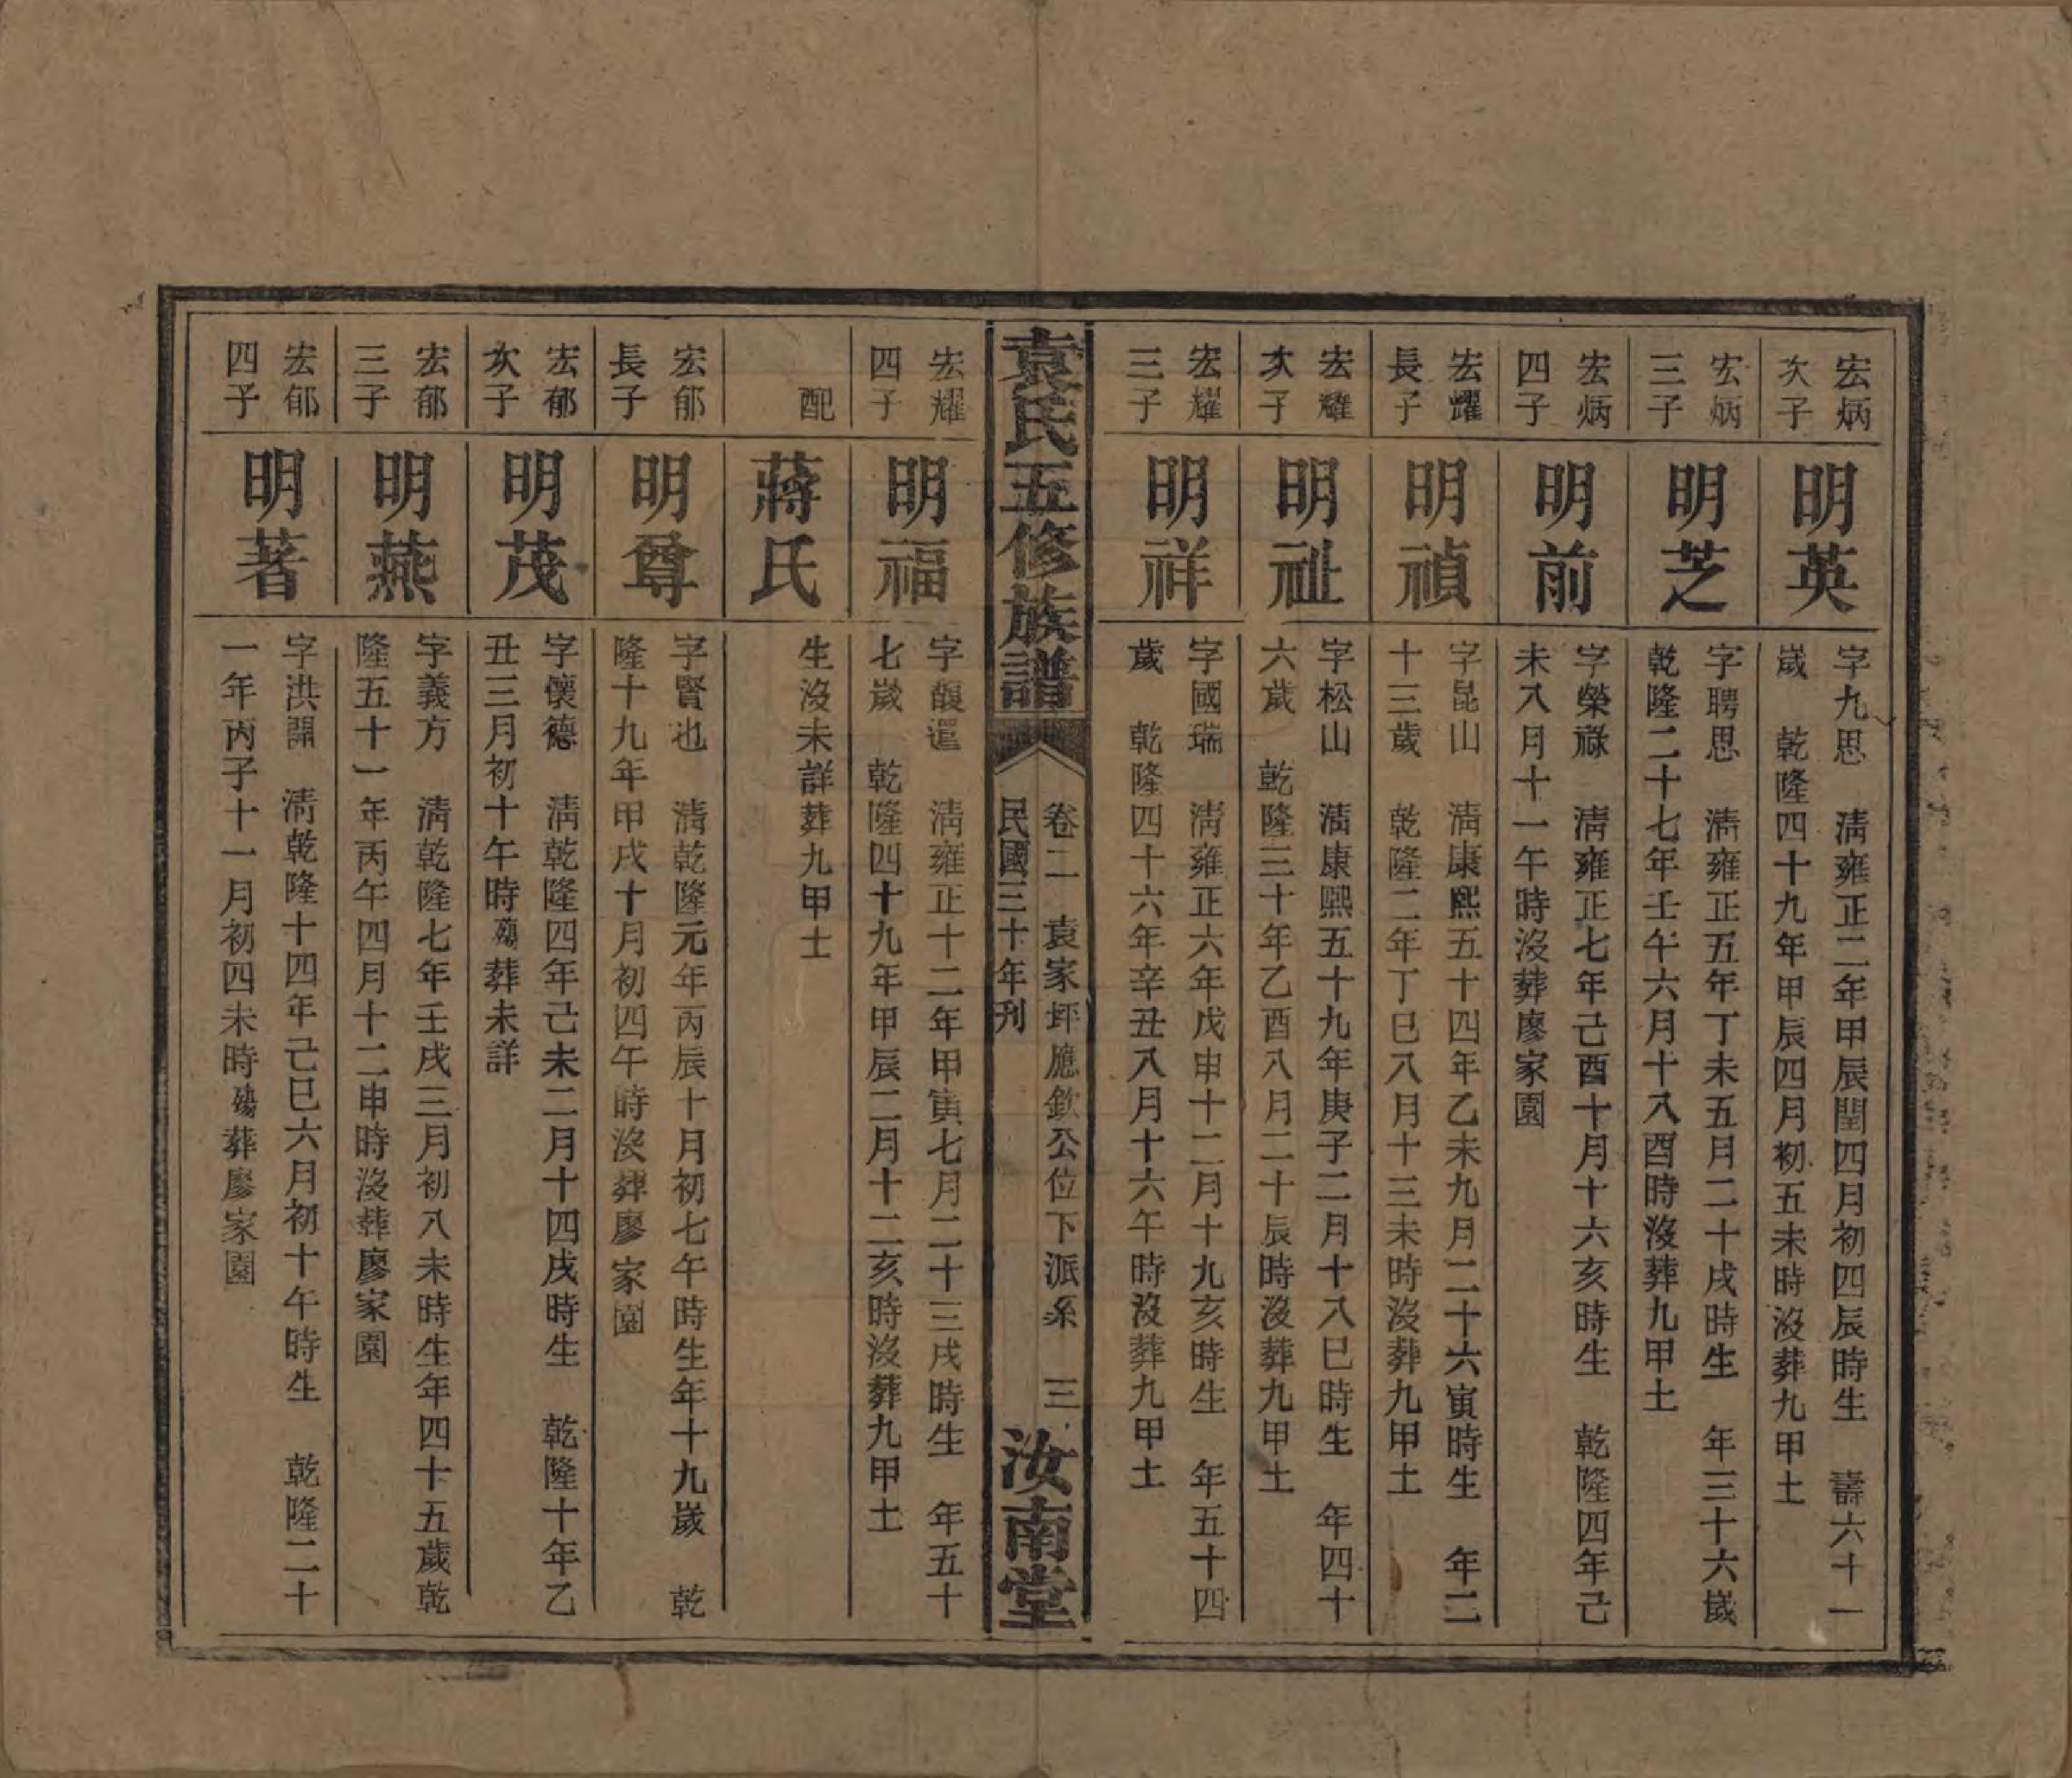 宏炳
次子
明英
字九思　清雍正二年甲辰閏四月初四辰時生　壽六十一
歲　乾隆四十九年甲辰四月初五未時沒葬九甲土
宏炳
三子
明芝
字聘思　清雍正五年丁未五月二十戌時生　年三十六歲
乾隆二十七年壬午六月十八酉時沒葬九甲土
宏炳
四子
明前
字榮祿　清雍正七年己酉十月十六亥時生　乾隆四年己
未八月十一午時沒葬廖家園
宏耀
長子
明禎
字昆山　清康熙五十四年乙未九月二十六寅時生　年二
十三歲　乾隆二年丁巳八月十三未時沒葬九甲土
宏耀
次子
明祉
字松山　清康熙五十九年庚子二月十八巳時生　年四十
六歲　乾隆三十年乙酉八月二十辰時沒葬九甲土
宏耀
三子
明祥
字國瑞　清雍正六年戊申十二月十九亥時生　年五十四
歲　乾隆四十六年辛丑八月十六午時沒葬九甲土
袁氏五修族譜
卷二　袁家坪應欽公位下派系　三
民國三十年刊
汝南堂
宏耀
四子
明福
字馥遠　清雍正十二年甲寅七月二十三戌時生　年五十
七歲　乾隆四十九年甲辰二月十二亥時沒葬九甲土
配
蔣氏
生沒未詳葬九甲土
宏郁
長子
明尊
字賢也　清乾隆元年丙辰十月初七午時生年十九歲　乾
隆十九年甲戌十月初四午時沒葬廖家園
宏郁
次子
明茂
字懷德　清乾隆四年己未二月十四戌時生　乾隆十年乙
丑三月初十午時殤葬未詳
宏郁
三子
明燕
字義方　清乾隆七年壬戌三月初八未時生年四十五歲乾
隆五十一年丙午四月十二申時沒葬廖家園
宏郁
四子
明著
字洪開　清乾隆十四年己巳六月初十午時生　乾隆二十
一年丙子十一月初四未時殤葬廖家園